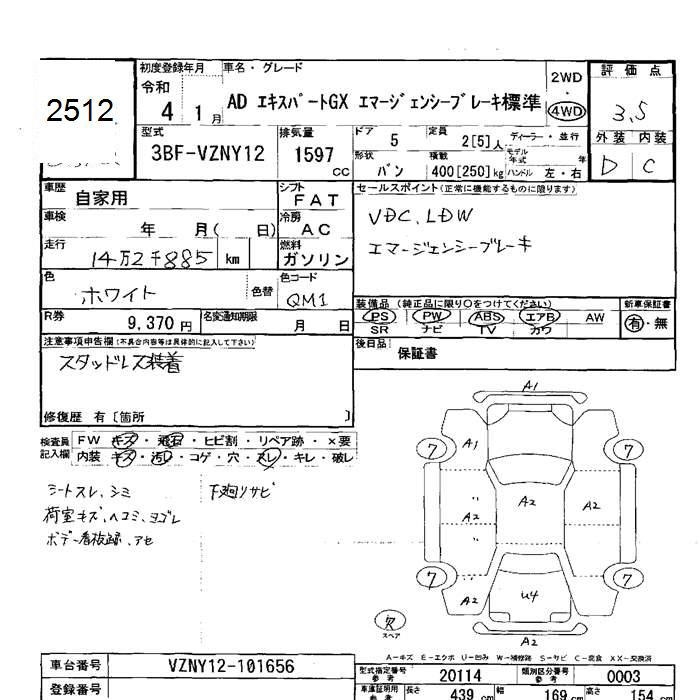 2512
初度登録年月
令和
4 1月
車名・グレード
AD エキスパートGX エマージェンシーブレーキ標準
2WD
・
4WD
評価点
3.5
外装 内装
D C
型式
3BF-VZNY12
排気量
1597 cc
ドア 5
定員 2[5]人
ディーラー・並行
形状 バン
積載 400[250]kg
モデル年式 年
ハンドル 左・右
車歴 自家用
シフト FAT
セールスポイント(正常に機能するものに限ります)
VDC、LDW
エマージェンシーブレーキ
車検 年 月( 日)
冷房 AC
走行 14万2千885 km
燃料 ガソリン
色 ホワイト 色替
色コード QM1
装備品 (純正品に限り○をつけてください)
PS PW ABS エアB AW
SR ナビ TV カワ
新車保証書
有・無
R券 9,370円
名変通知期限 月 日
後日品 保証書
注意事項申告欄(不具合内容等は具体的に記入して下さい)
スタッドレス装着
修復歴 有 [箇所 ]
検査員記入欄
FW キズ・飛石・ヒビ割・リペア跡・×要
内装 キズ・汚レ・コゲ・穴・スレ・キレ・破レ
シートスレ、シミ
荷室キズ、ヘコミ、ヨゴレ
ボデー看板録、アセ
下廻リサビ
A1
7 A1 7
A2 A2 A2
7 A2 U4 7
A2
スペア
A-キズ E-エクボ U-凹み W-補修跡 S-サビ C-腐食 XX-交換済
車台番号 VZNY12-101656
登録番号
型式指定番号 参考 20114
類別区分番号 参考 0003
車庫証明用 参考
長さ 439 cm
幅 169 cm
高さ 154 cm